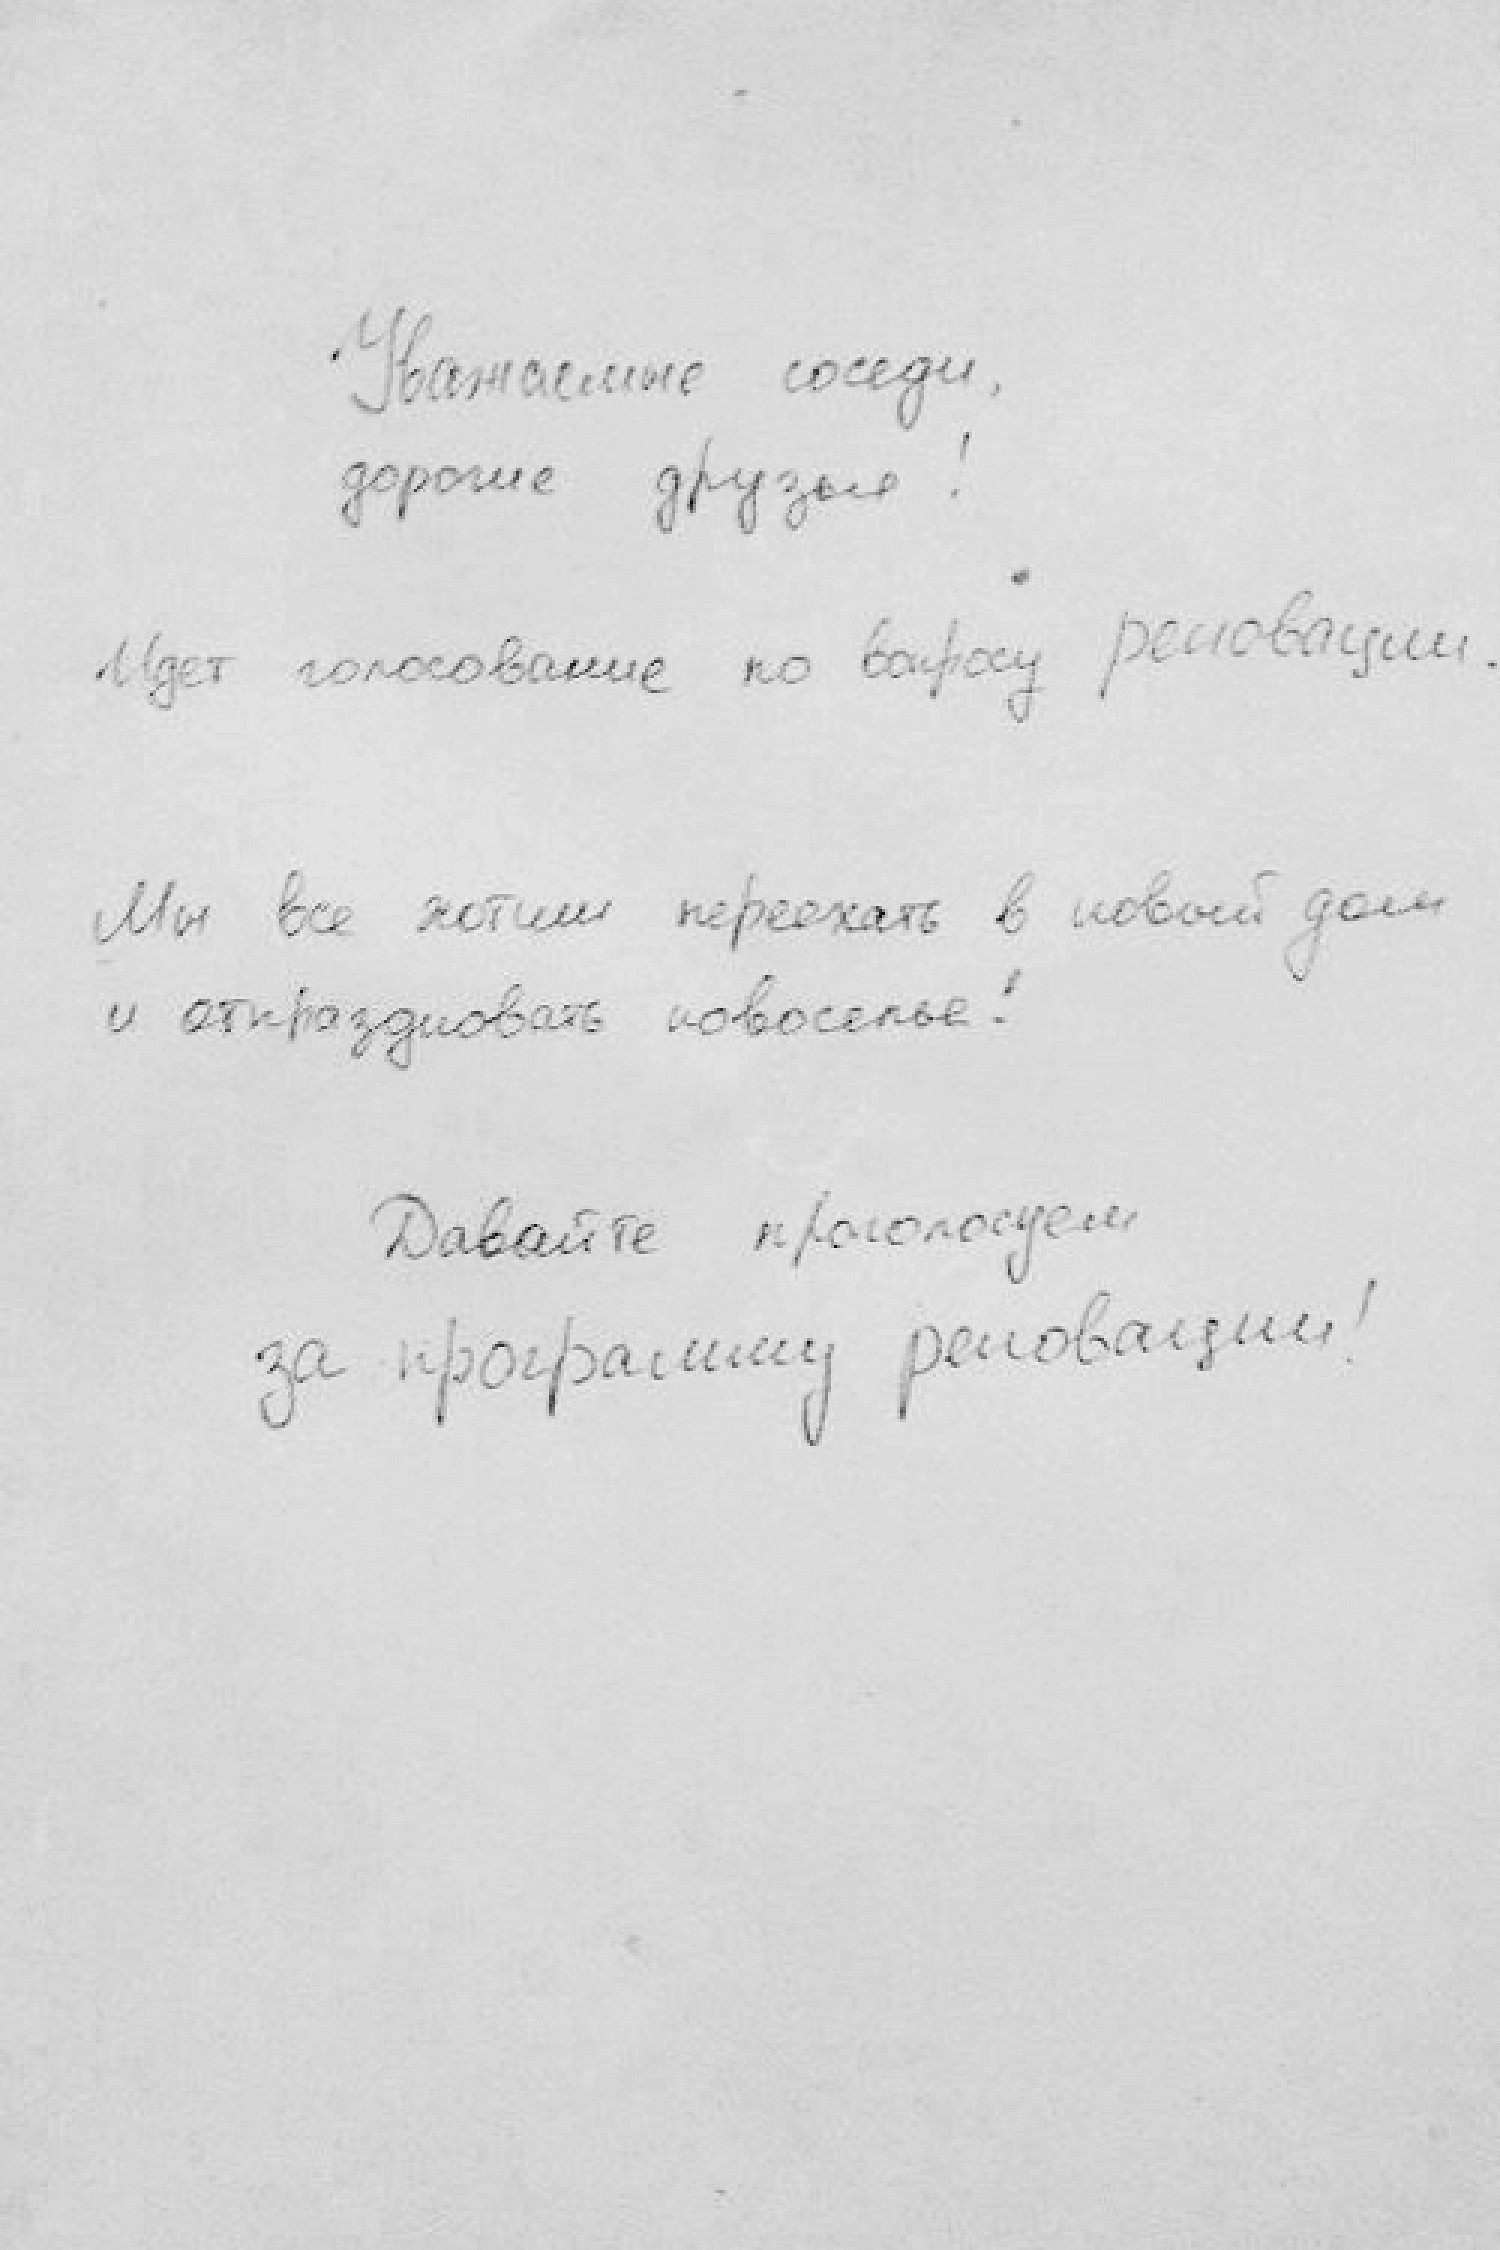 Уважаемые соседи,
дорогие друзья!
Идет голосование по вопросу реновации.
Мы все хотим переехать в новый дом
и отпраздновать новоселье!
Давайте проголосуем
за программу реновации!